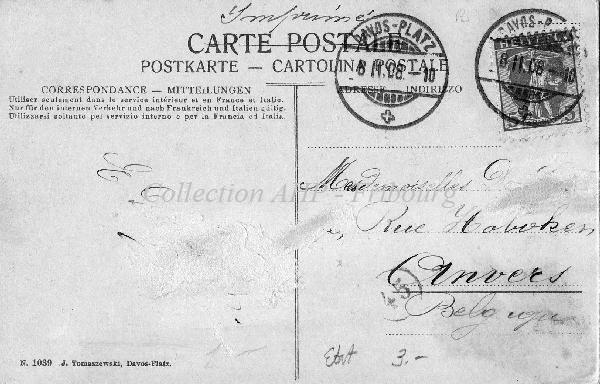 Imprimé
CARTE POSTALE
POSTKARTE — CARTOLINA POSTALE
DAVOS-PLATZ
6 II.08.-10
DAVOS-P
6 II.08 10
CORRESPONDANCE — MITTEILUNGEN
ADRESSE INDIRIZZO
Utiliser seulement dans le service intérieur et en France et Italie.
Nur für den internen Verkehr und nach Frankreich und Italien gültig.
Utilizzarsi soltanto pel servizio interno e per la Francia ed Italia.
Collection AHP - Fribourg
Mesdemoiselles
Rue Hoboken
Anvers
Belgique
N. 1039 J. Tomaszewski, Davos-Platz.
3.-